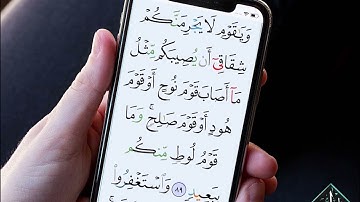 وَيَٰقَوۡمِ لَا يَجۡرِمَنَّكُمۡ
شِقَاقِيٓ أَن يُصِيبَكُم مِّثۡلُ
مَآ أَصَابَ قَوۡمَ نُوحٍ أَوۡ قَوۡمَ
هُودٍ أَوۡ قَوۡمَ صَٰلِحٖۚ وَمَا
قَوۡمُ لُوطٖ مِّنكُم
بِبَعِيدٖ ٨٩ وَٱسۡتَغۡفِرُواْ